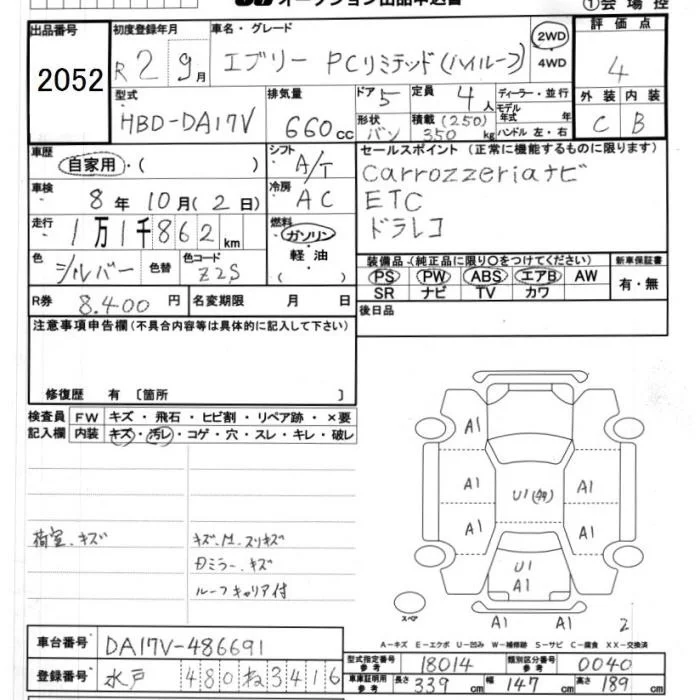 オークション出品申込書
①会場控
出品番号 2052
初度登録年月 R2 9月
車名・グレード エブリー PCリミテッド(ハイルーフ)
2WD
4WD
評価点 4
型式 HBD-DA17V
排気量 660cc
ドア 5
形状 バン
定員 4人
積載 (250) 350kg
ディーラー・並行
モデル年式 年
ハンドル 左・右
外装 内装
C B
車歴 自家用・( )
シフト A/T
セールスポイント (正常に機能するものに限ります)
carrozzeriaナビ
ETC
ドラレコ
車検 8年10月(2日)
冷房 AC
走行 1万1千862km
燃料 ガソリン・軽油( )
色 シルバー 色替
色コード Z2S
装備品 (純正品に限り○をつけてください)
PS PW ABS エアB AW
SR ナビ TV カワ
新車保証書
有・無
R券 8.400円
名変期限 月 日
後日品
注意事項申告欄 (不具合内容等は具体的に記入して下さい)
修復歴 有 〔箇所 〕
検査員記入欄
FW キズ・飛石・ヒビ割・リペア跡・×要
内装 キズ・汚レ・コゲ・穴・スレ・キレ・破レ
荷室.キズ
キズ.凹.スリキズ
Dミラー.キズ
ルーフキャリア付
A1
A1 A1
U1(有)
A1 A1
U1
A1
スペア
A1 A1 2
A-キズ E-エクボ U-凹み W-補修跡 S-サビ C-腐食 XX-交換済
車台番号 DA17V-486691
登録番号 水戸 480 ね 3416
型式指定番号 参考 18014
類別区分番号 参考 0040
車庫証明用 参考 長さ 339cm 幅 147cm 高さ 189cm